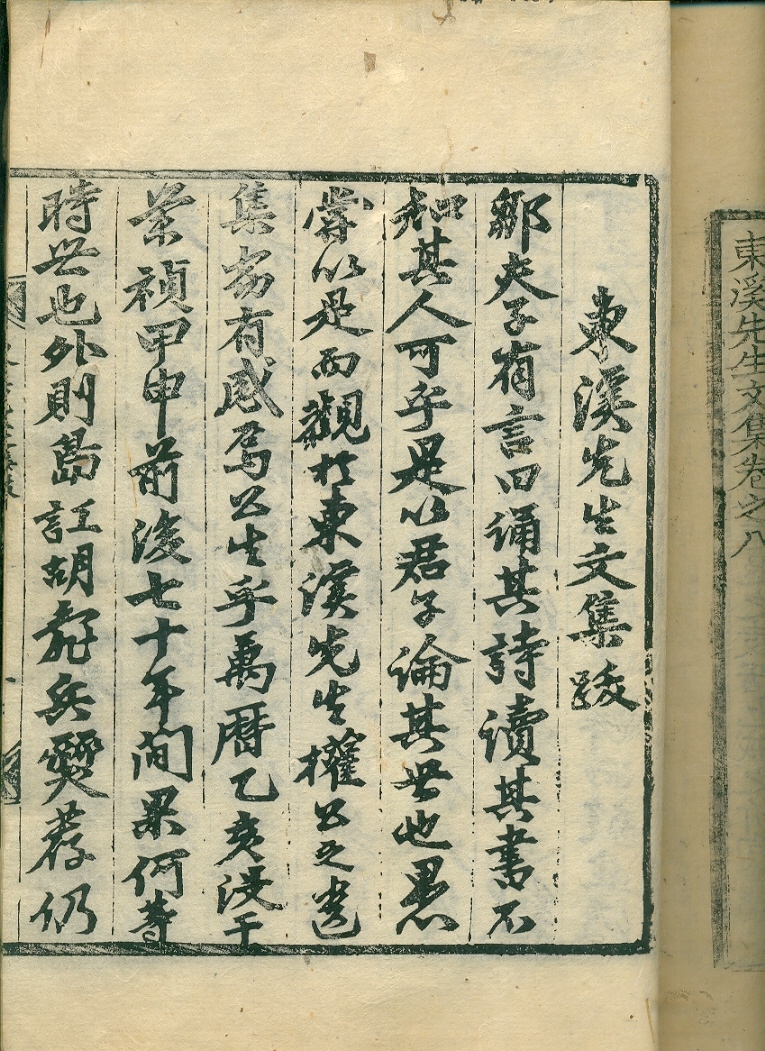 東溪先生文集卷之八
東溪先生文集跋
鄒夫子有言曰誦其詩讀其書不
知其人可乎是以君子論其世也愚
嘗以是而觀於東溪先生權公之遺
集窃有感焉公生乎萬曆乙亥沒于
崇禎甲申前後七十年間果何等
時世也外則島訌胡兵燹荐仍